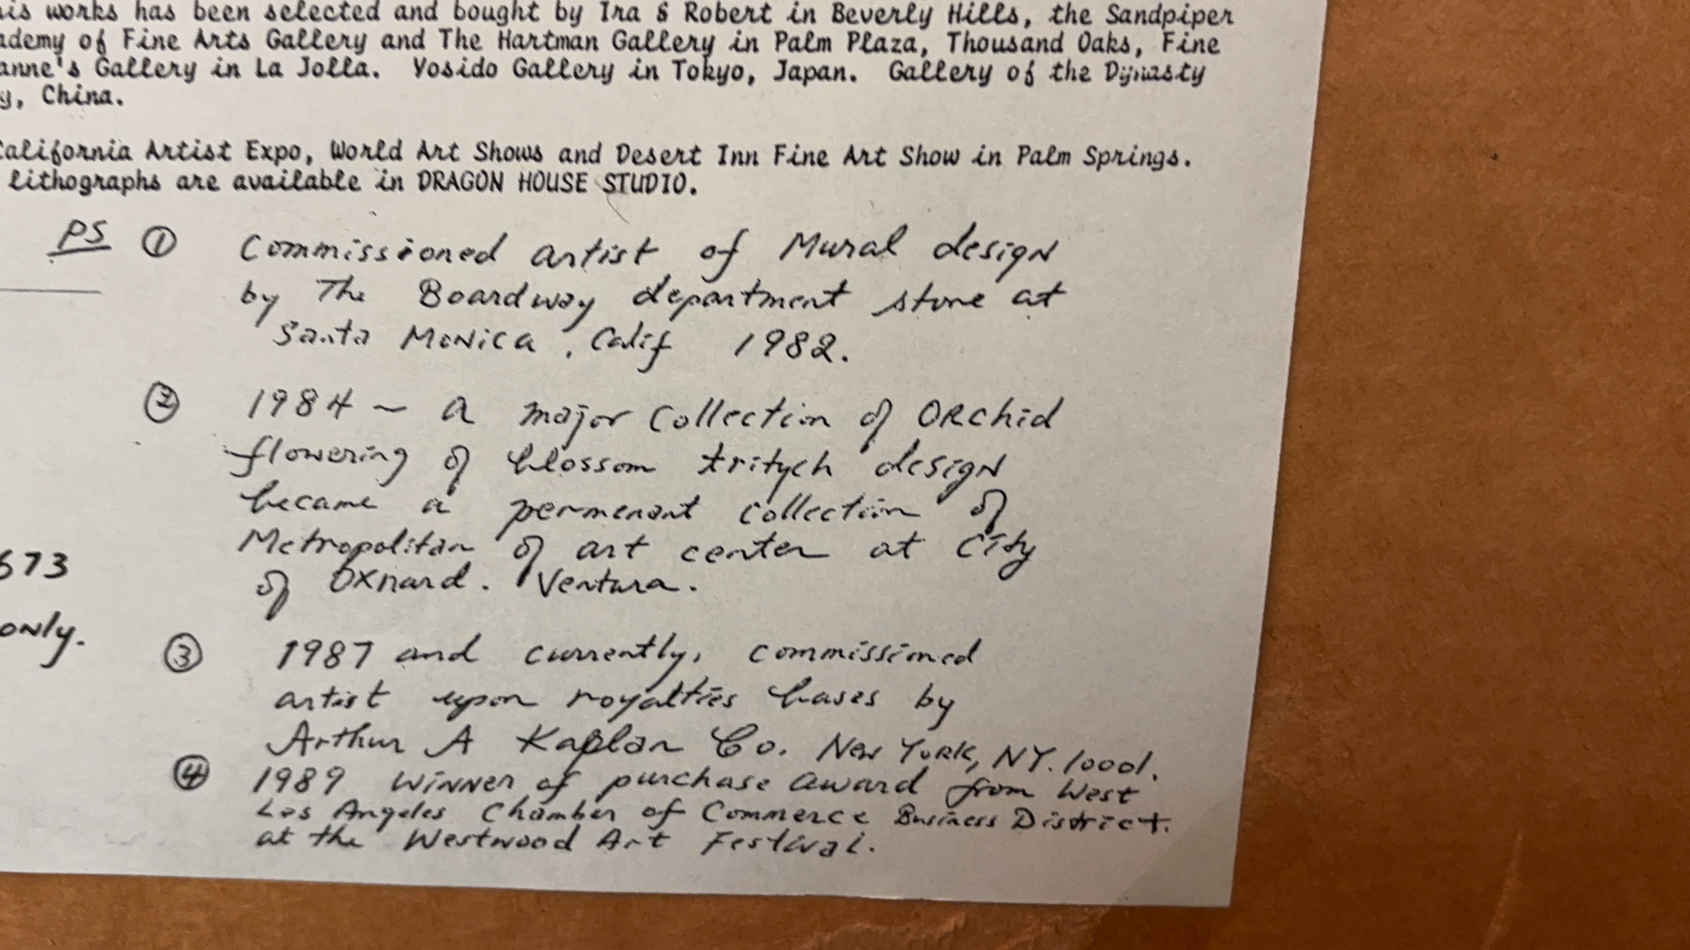 is works has been selected and bought by Ira & Robert in Beverly Hills, the Sandpiper
ademy of Fine Arts Gallery and The Hartman Gallery in Palm Plaza, Thousand Oaks, Fine
anne's Gallery in La Jolla. Yosido Gallery in Tokyo, Japan. Gallery of the Dynasty
y, China.
California Artist Expo, World Art Shows and Desert Inn Fine Art Show in Palm Springs.
lithographs are available in DRAGON HOUSE STUDIO.
PS ① Commissioned artist of Mural design
by The Boardway department store at
Santa Monica, Calif 1982.
② 1984 ~ a major collection of ORchid
flowering of blossom tritych design
became a permenant collection of
Metropolitan of art center at City
of Oxnard. Ventura.
673
only.
③ 1987 and currently, commissioned
artist upon royalties bases by
Arthur A Kaplan Co. New York, NY. 10001.
④ 1989 Winner of purchase award from West
Los Angeles Chamber of Commerce Business District.
at the Westwood Art Festival.